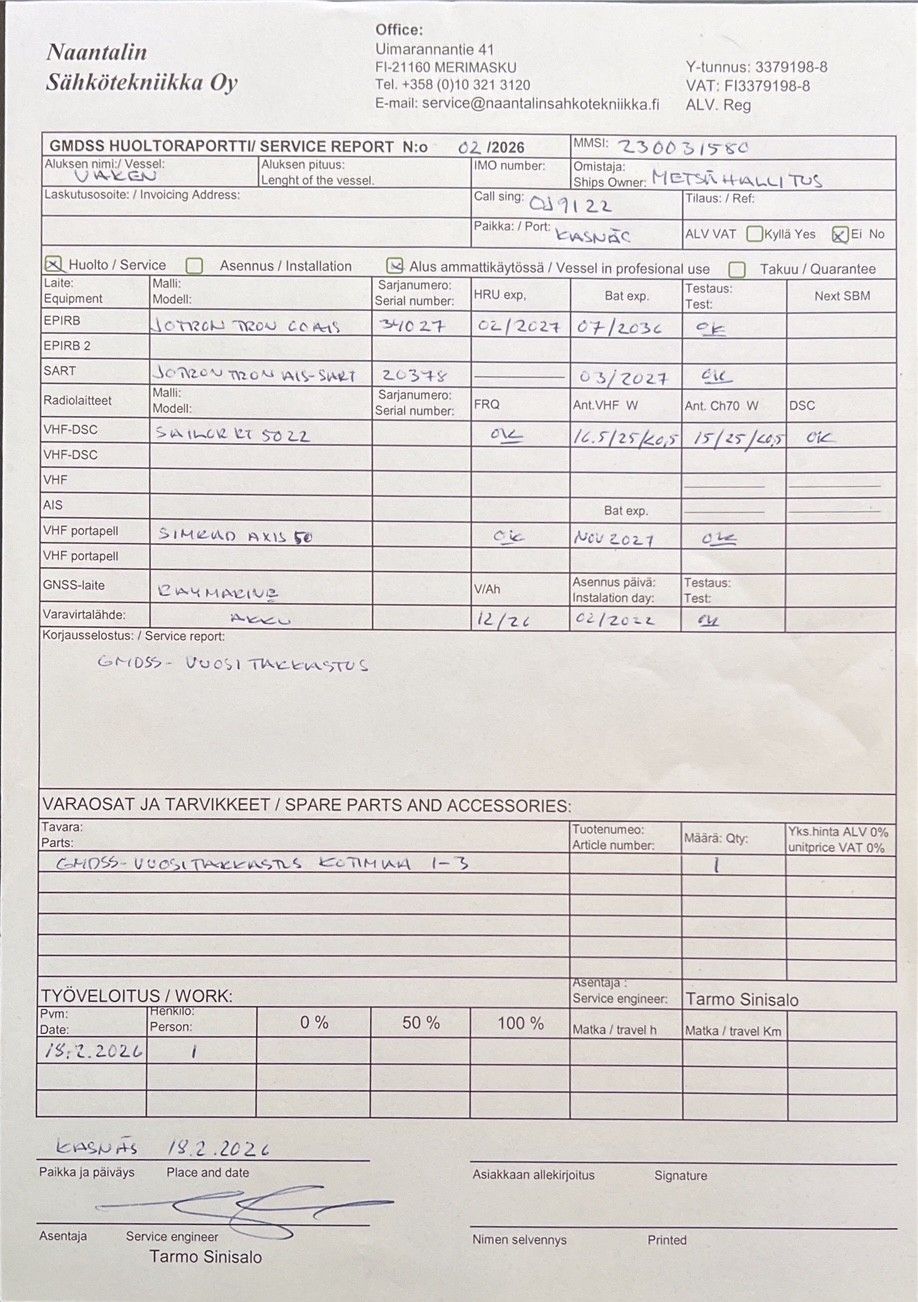 Naantalin
Sähkötekniikka Oy
Office:
Uimarannantie 41
FI-21160 MERIMASKU
Tel. +358 (0)10 321 3120
E-mail: service@naantalinsahkotekniikka.fi
Y-tunnus: 3379198-8
VAT: FI3379198-8
ALV. Reg
GMDSS HUOLTORAPORTTI/ SERVICE REPORT N:o 02 /2026 MMSI: 230031580
Aluksen nimi:/ Vessel: VAKEN Aluksen pituus: Lenght of the vessel. IMO number: Omistaja: Ships Owner: METSÄHALLITUS
Laskutusosoite: / Invoicing Address: Call sing: OJ9122 Tilaus: / Ref:
Paikka: / Port: KASNÄS ALV VAT Kyllä Yes Ei No
Huolto / Service Asennus / Installation Alus ammattikäytössä / Vessel in profesional use Takuu / Quarantee
Laite: Malli: Sarjanumero: HRU exp, Bat exp. Testaus: Next SBM
Equipment Modell: Serial number: Test:
EPIRB JOTRON TRON 60AIS 34027 02/2027 07/2030 OK
EPIRB 2
SART JOTRON TRON AIS-SART 20378 03/2027 OK
Radiolaitteet Malli: Sarjanumero: FRQ Ant.VHF W Ant. Ch70 W DSC
Modell: Serial number:
VHF-DSC SAILOR RT 5022 OK 16.5/25/<0,5 15/25/<0,5 OK
VHF-DSC
VHF
AIS Bat exp.
VHF portapell SIMRAD AXIS 50 OK NOV 2027 OK
VHF portapell
GNSS-laite RAYMARINE V/Ah Asennus päivä: Testaus:
Instalation day: Test:
Varavirtalähde: AKKU 12/26 02/2022 OK
Korjausselostus: / Service report:
GMDSS- VUOSITARKASTUS
VARAOSAT JA TARVIKKEET / SPARE PARTS AND ACCESSORIES:
Tavara: Tuotenumeo: Määrä: Qty: Yks.hinta ALV 0%
Parts: Article number: unitprice VAT 0%
GMDSS-VUOSITARKASTUS KOTIMAA 1-3 1
TYÖVELOITUS / WORK: Asentaja : Service engineer: Tarmo Sinisalo
Pvm: Henkilö: 0 % 50 % 100 % Matka / travel h Matka / travel Km
Date: Person:
18.2.2026 1
KASNÄS 18.2.2026
Paikka ja päiväys Place and date Asiakkaan allekirjoitus Signature
Asentaja Service engineer Nimen selvennys Printed
Tarmo Sinisalo